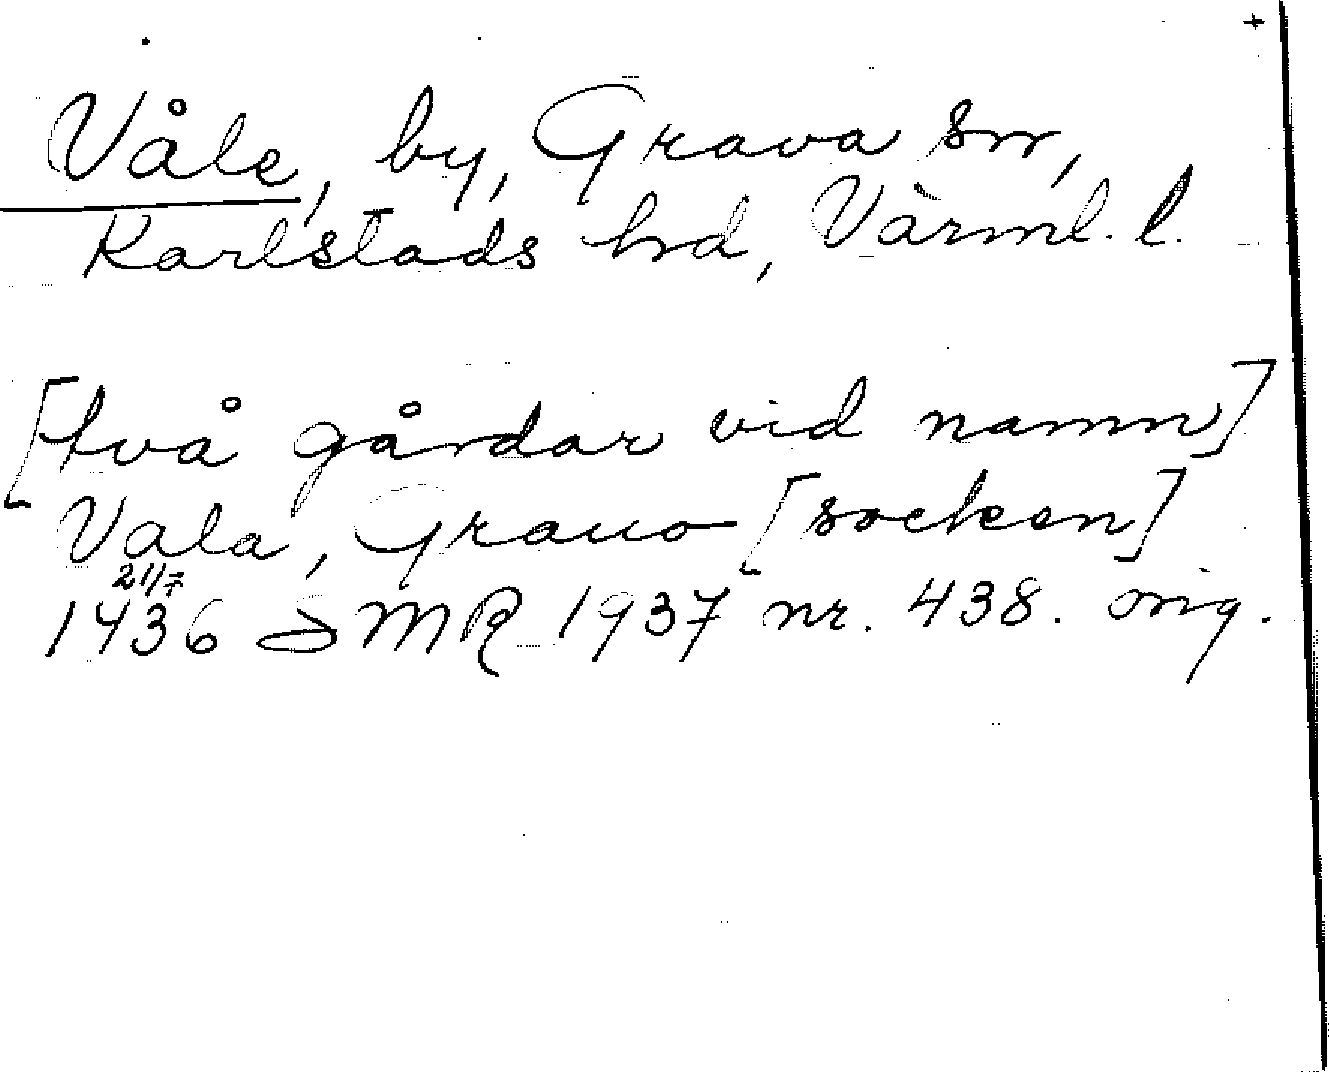 +
Våle, by, Grava sn,
Karlstads hd, Värml. l.
[två gårdar vid namn]
Vala, Grauo [socken]
21/7
1436 SMR 1937 nr. 438. orig.